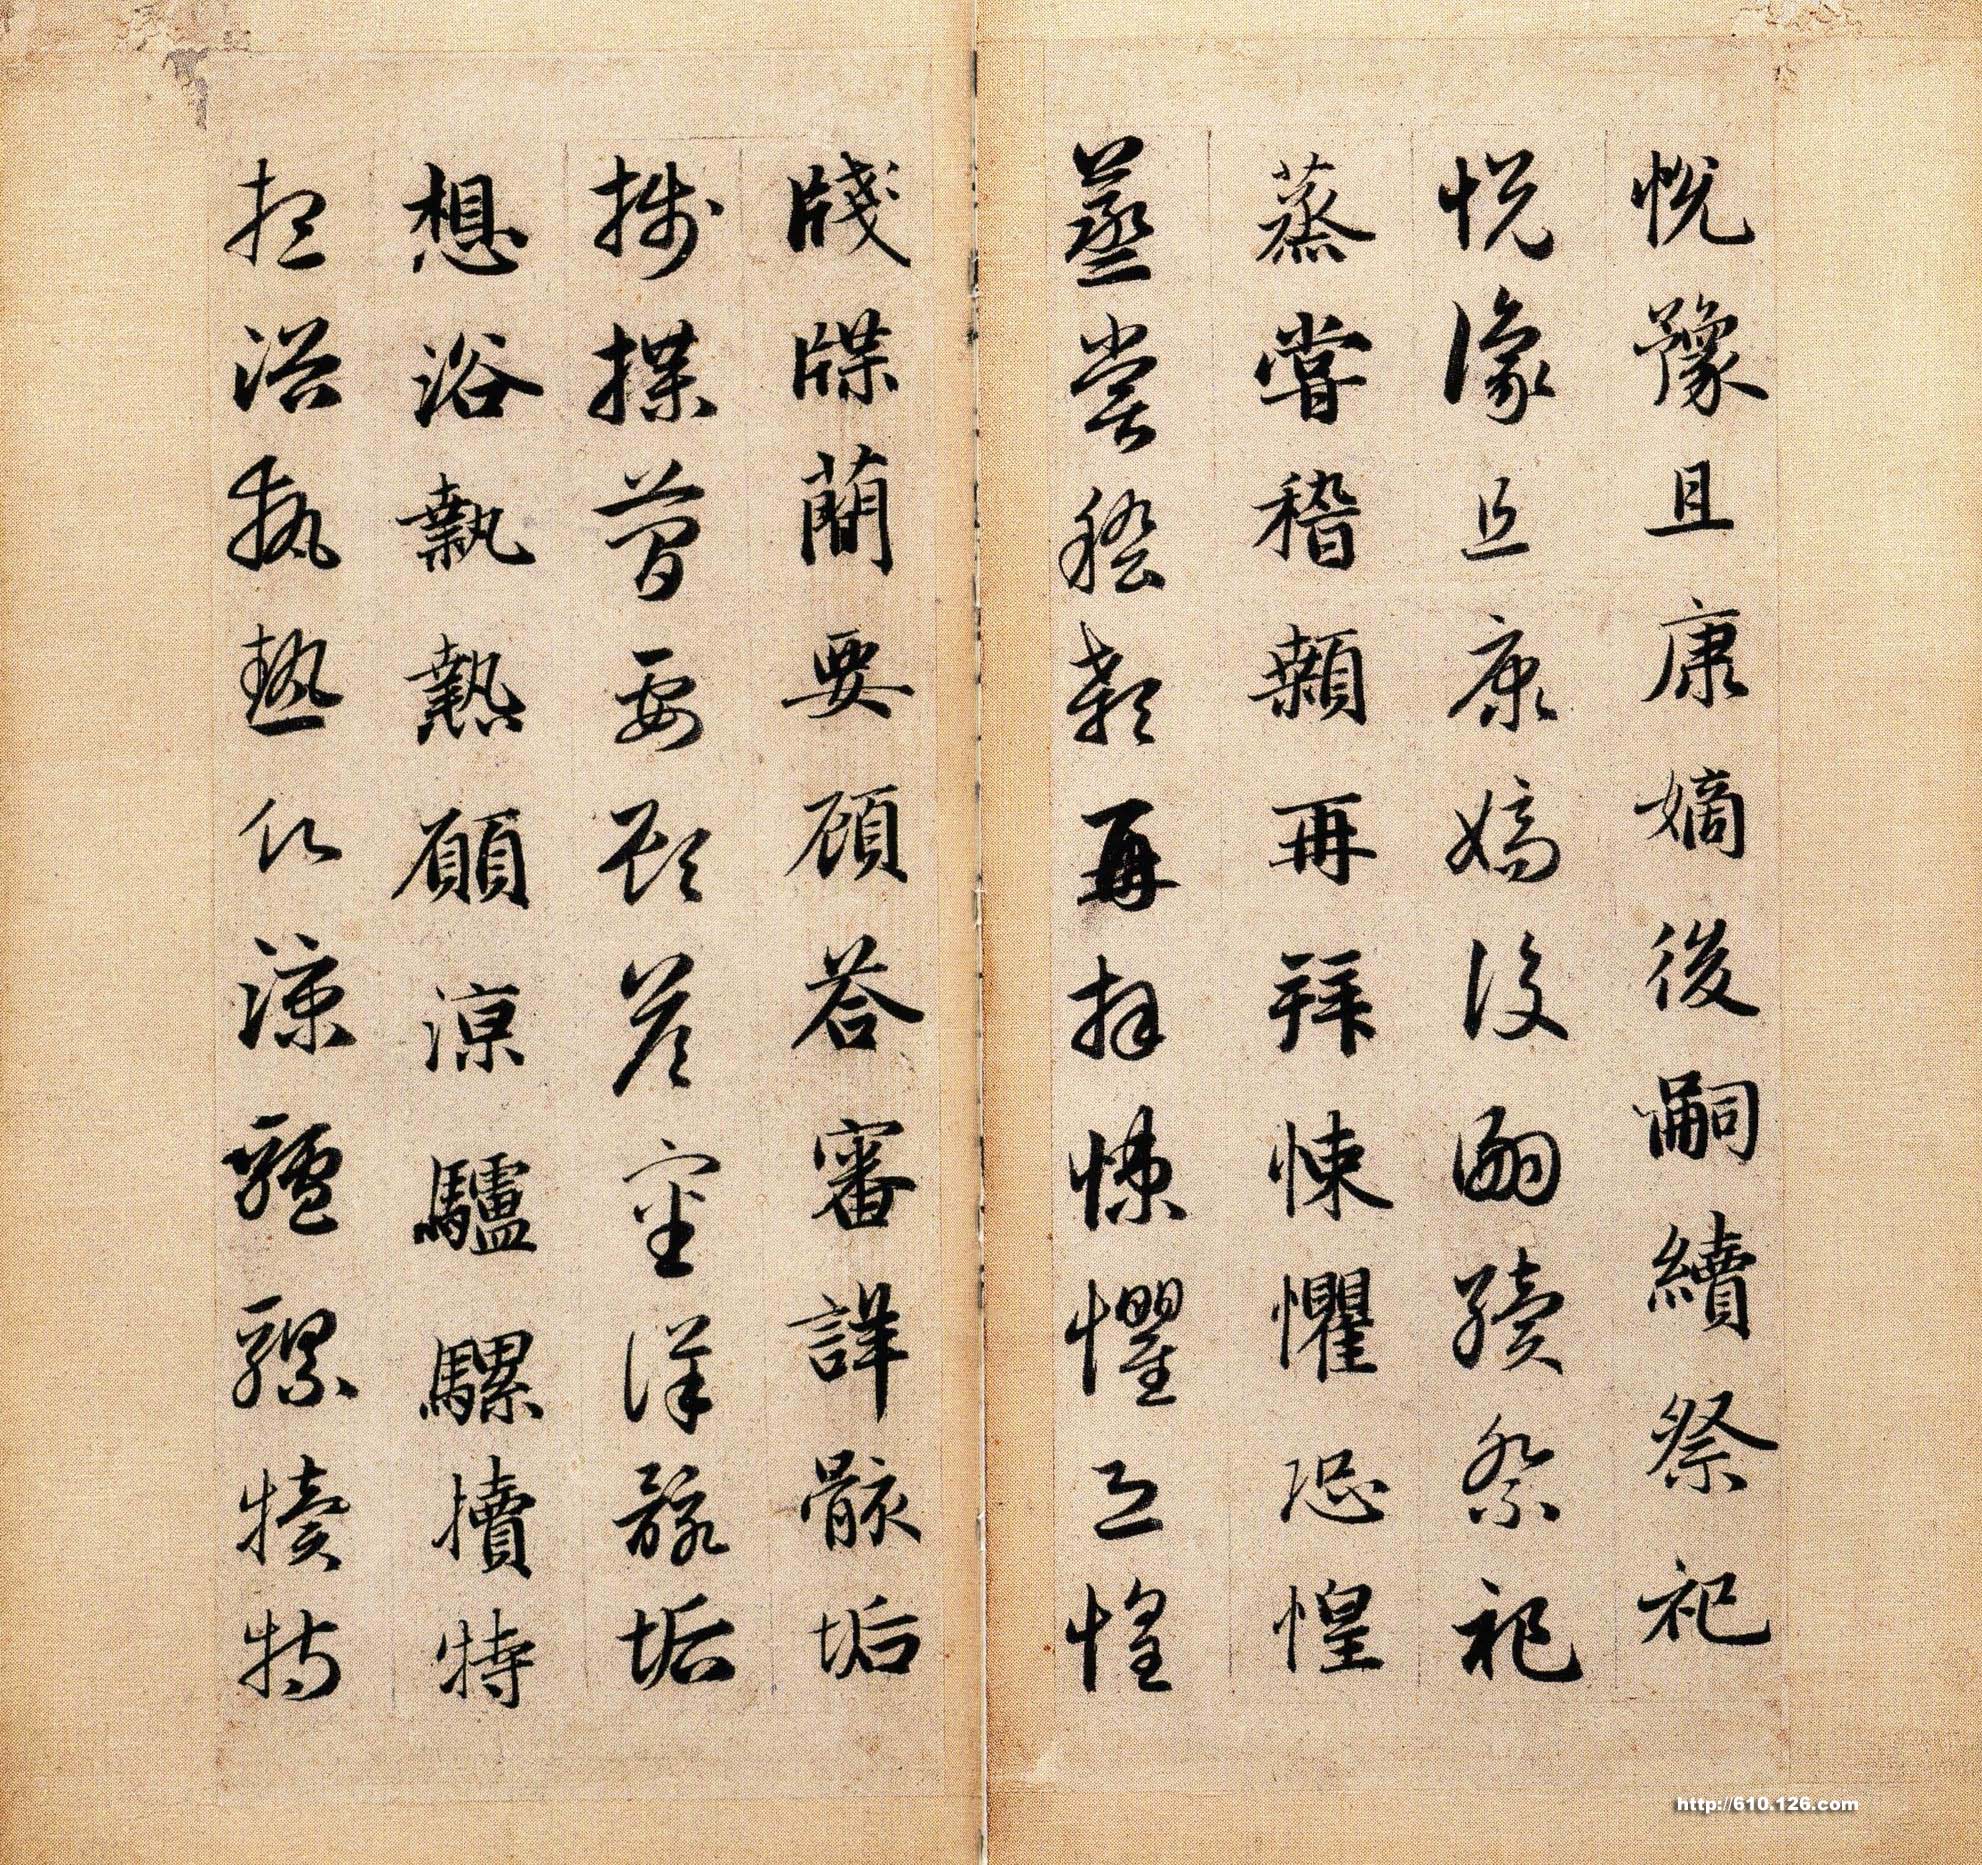 悦豫且康嫡後嗣續祭祀
悦豫且康嫡後嗣續祭祀
蒸嘗稽顙再拜悚懼恐惶
蒸嘗稽顙再拜悚懼恐惶
牋牒簡要顧答審詳骸垢
牋牒簡要顧答審詳骸垢
想浴執熱願涼驢騾犢特
想浴執熱願涼驢騾犢特
http://610.126.com